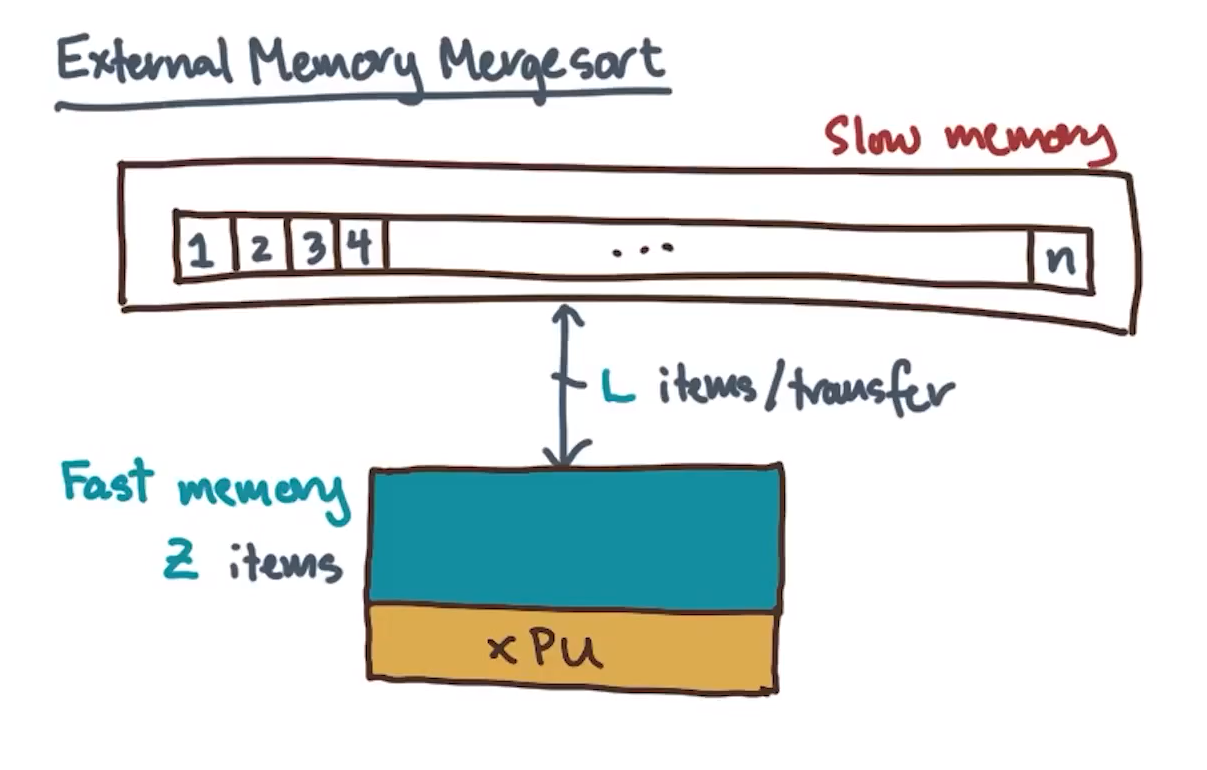 External Memory Mergesort
Slow memory
1 2 3 4 ... n
L items/transfer
Fast memory
Z items
xPU